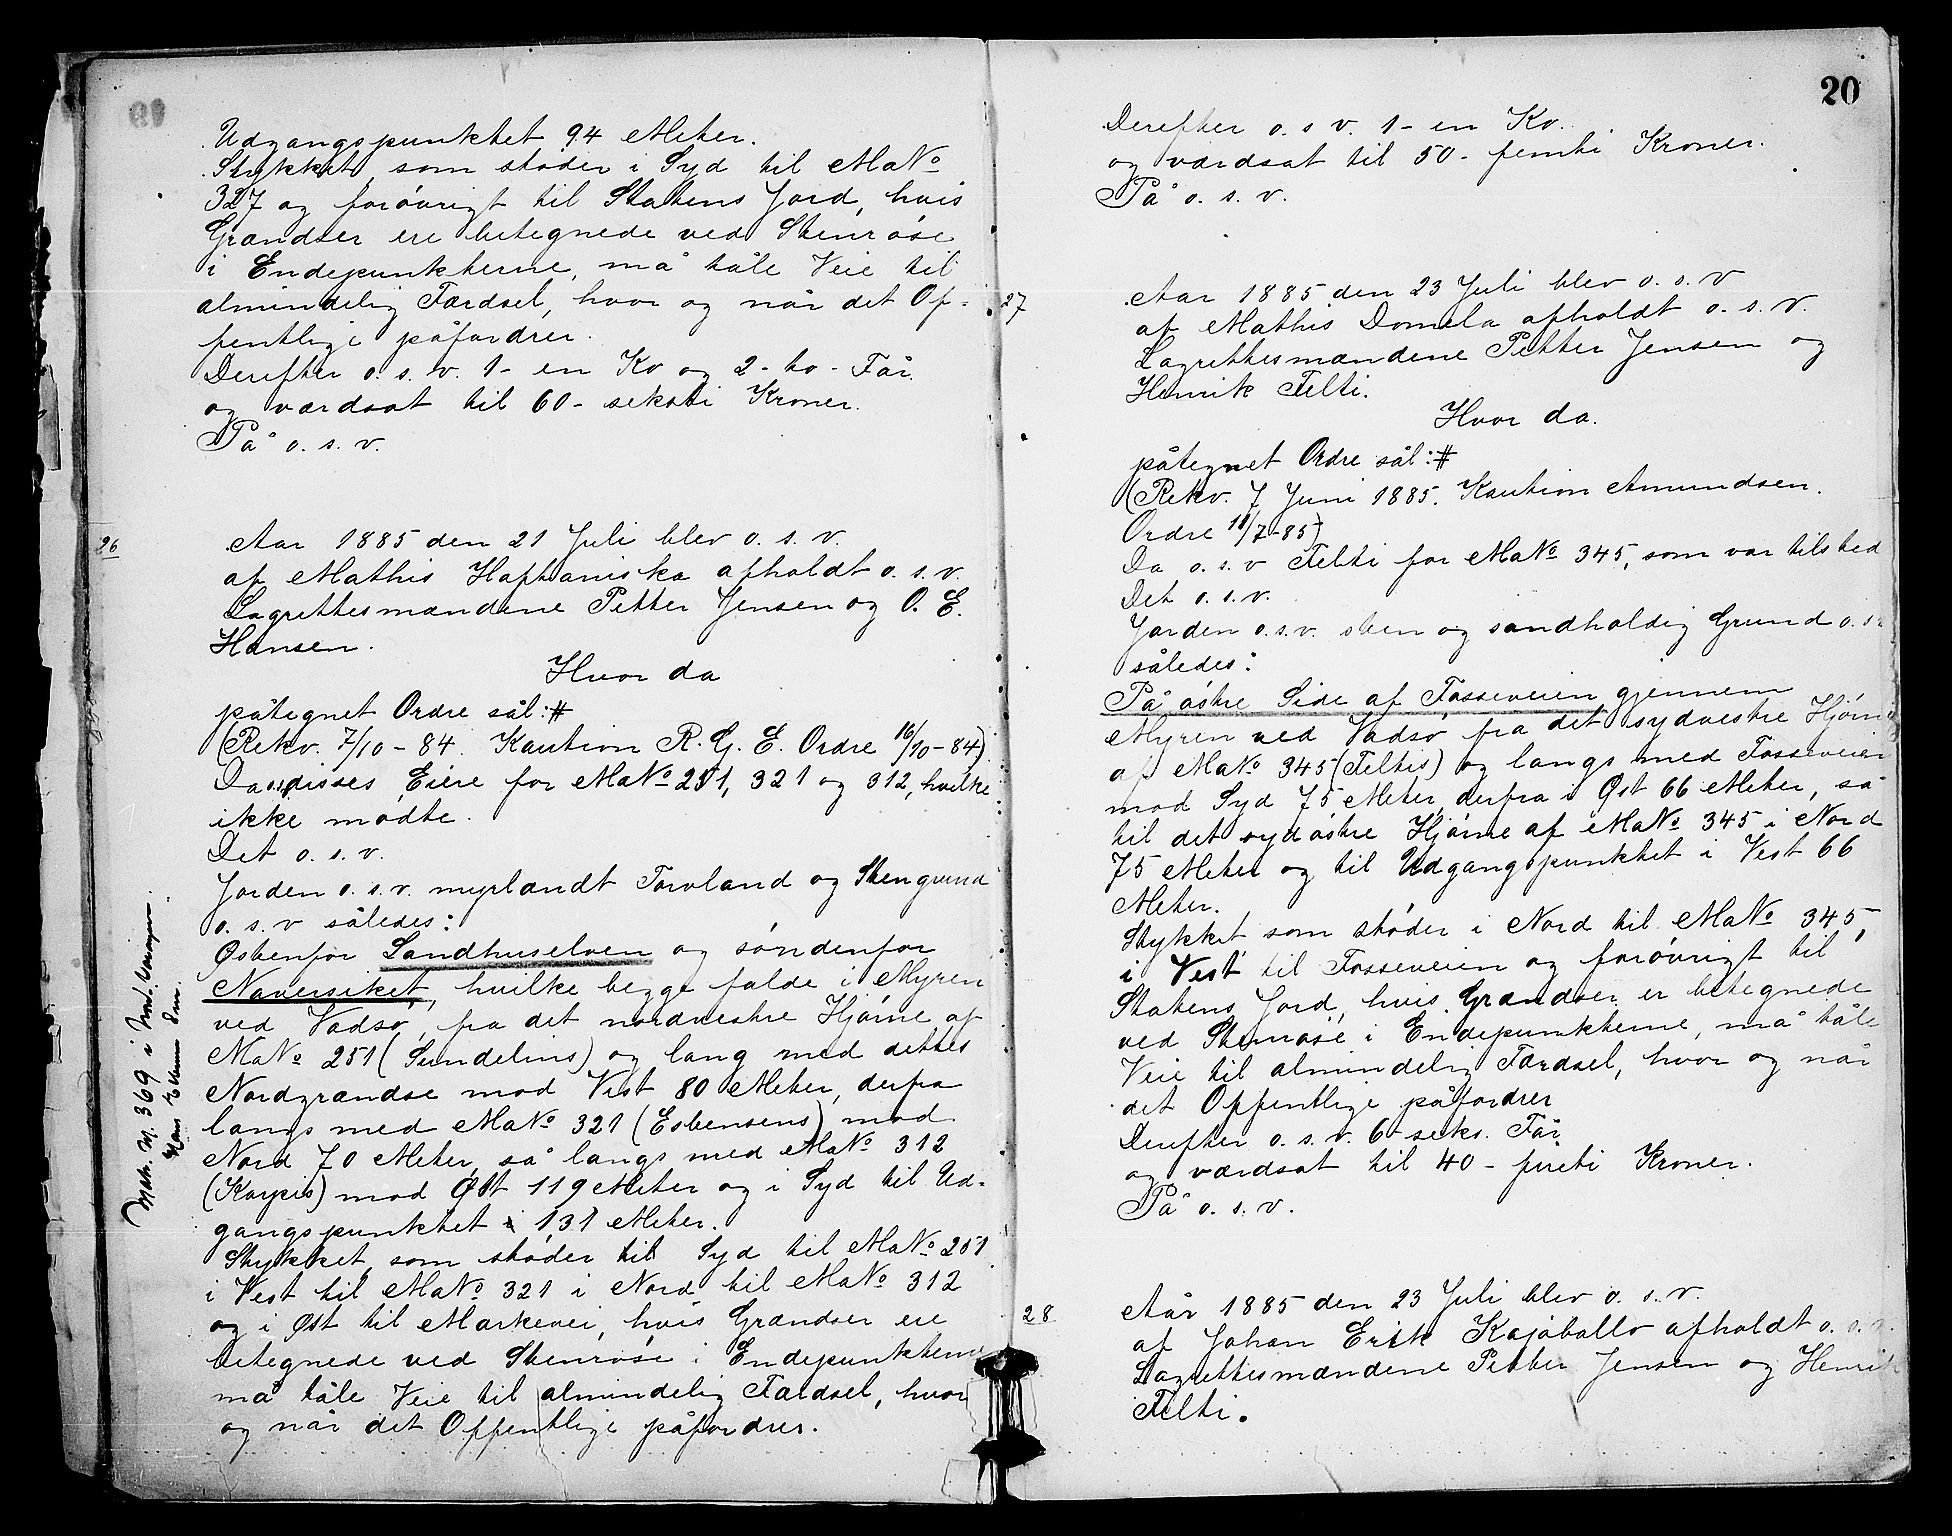 Udgangspunktet 94 Meter.
Stykket, som støder i Syd til Ma№
327 og forøvrigt til Statens Jord, hvis
Grændser ere betegnede ved Stenrøse
i Endepunkterne, må tåle Veie til
almindelig Færdsel, hvor og når det Of-
fentlige påfordrer.
Derefter o. s. v. 1- en Ko og 2- to - Får.
og værdsat til 60- seksti Kroner.
På o. s. v.
26
Aar 1885 den 21 Juli blev o. s. v.
af Mathis Haptaniska afholdt o. s. v.
Lagrettesmændene Petter Jensen og O. E.
Hansen.
Hvor da
påtegnet Ordre sål:#
(Rekv. 7/10-84. Kaution R. G. E. Ordre 16/10-84)
Da disses Eiere for Ma№ 251, 321 og 312, hvilke
ikke mødte.
Det o. s. v.
Jorden o. s. v. myrlændt Torvland og Stengrund
o. s. v således:
Østenfor Sandhuselven og søndenfor
Naversiket, hvilke begge falde i Myren
ved Vadsø, fra det nordvestre Hjørne af
Ma№ 251 (Sundelins) og lang med dettes
Nordgrændse mod Vest 80 Meter, derfra
langs med Ma№ 321 (Esbensens) mod
Nord 70 Meter, så langs med Ma№ 312
(Karpis) mod Øst 119 Meter og i Syd til Ud-
gangspunktet 131 Meter.
Stykket, som støder til Syd til Ma№ 251
i Vest til Ma№ 321 i Nord til Ma№ 312
og i Øst til Markevei, hvis Grændser ere
betegnede ved Stenrøse i Endepunkterne
må tåle Veie til almindelig Færdsel, hvor
og når det Offentlige påfordrer.
Matr. № 369 i
20
Derefter o. s v. 1- en Ko.
og værdsat til 50- femti Kroner.
På o. s. v.
27
Aar 1885 den 23 Juli blev o. s. v
af Mathis Domela afholdt o. s. v.
Lagrettesmændene Petter Jensen og
Henrik Felti.
Hvor da.
påtegnet Ordre sål:#
(Rekv. 7 Juni 1885. Kaution Amundsen.
Ordre 11/7-85)
Da o. s. v Felti for Ma№ 345, som var tilsted
Det o. s. v.
Jorden o. s. v. sten og sandholdig Grund o. s v
således:
På østre Side af Fosseveien gjennem
Myren ved Vadsø fra det sydvestre Hjørne
af Ma№ 345 (Feltis) og langs med Fosseveien
mod Syd 75 Meter, derfra i Øst 66 Meter, så
til det sydøstre Hjørne af Ma№ 345 i Nord
75 Meter og til Udgangspunktet i Vest 66
Meter.
Stykket som støder i Nord til Ma№ 345,
i Vest til Fosseveien og forøvrigt til
Statens Jord, hvis Grændser er betegnede
ved Stenrøse i Endepunkterne, må tåle
Veie til almindelig Færdsel, hvor og når
det Offentlige påfordrer
Derefter o. s. v. 6- seks. Får.
og værdsat til 40- fireti Kroner.
På o. s. v.
28
Aår 1885 den 23 Juli blev o. s. v.
af Johan Erik Kajaballo afholdt o. s. v.
Lagrettesmændene Petter Jensen og Henrik
Felti.